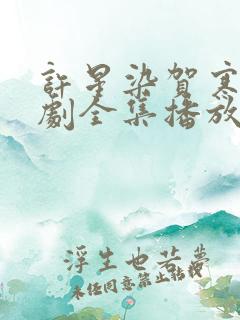 許星染賀寒
劇全集播放
浮生也若夢
未任同意禁止转载